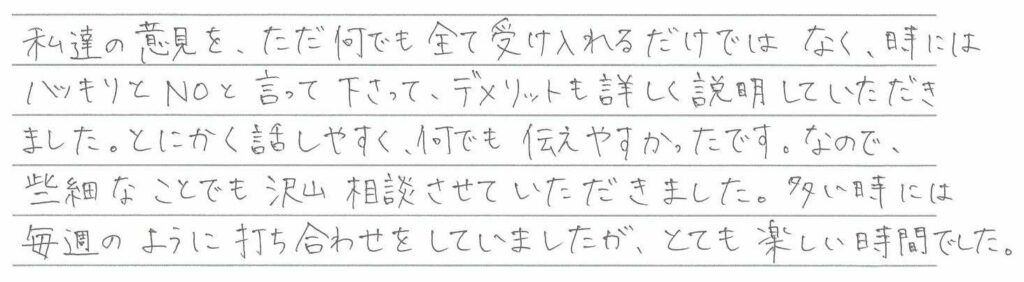 私達の意見を、ただ何でも全て受け入れるだけではなく、時には
ハッキリとNOと言って下さって、デメリットも詳しく説明していただき
ました。とにかく話しやすく、何でも伝えやすかったです。なので、
些細なことでも沢山相談させていただきました。多い時には
毎週のように打ち合わせをしていましたが、とても楽しい時間でした。